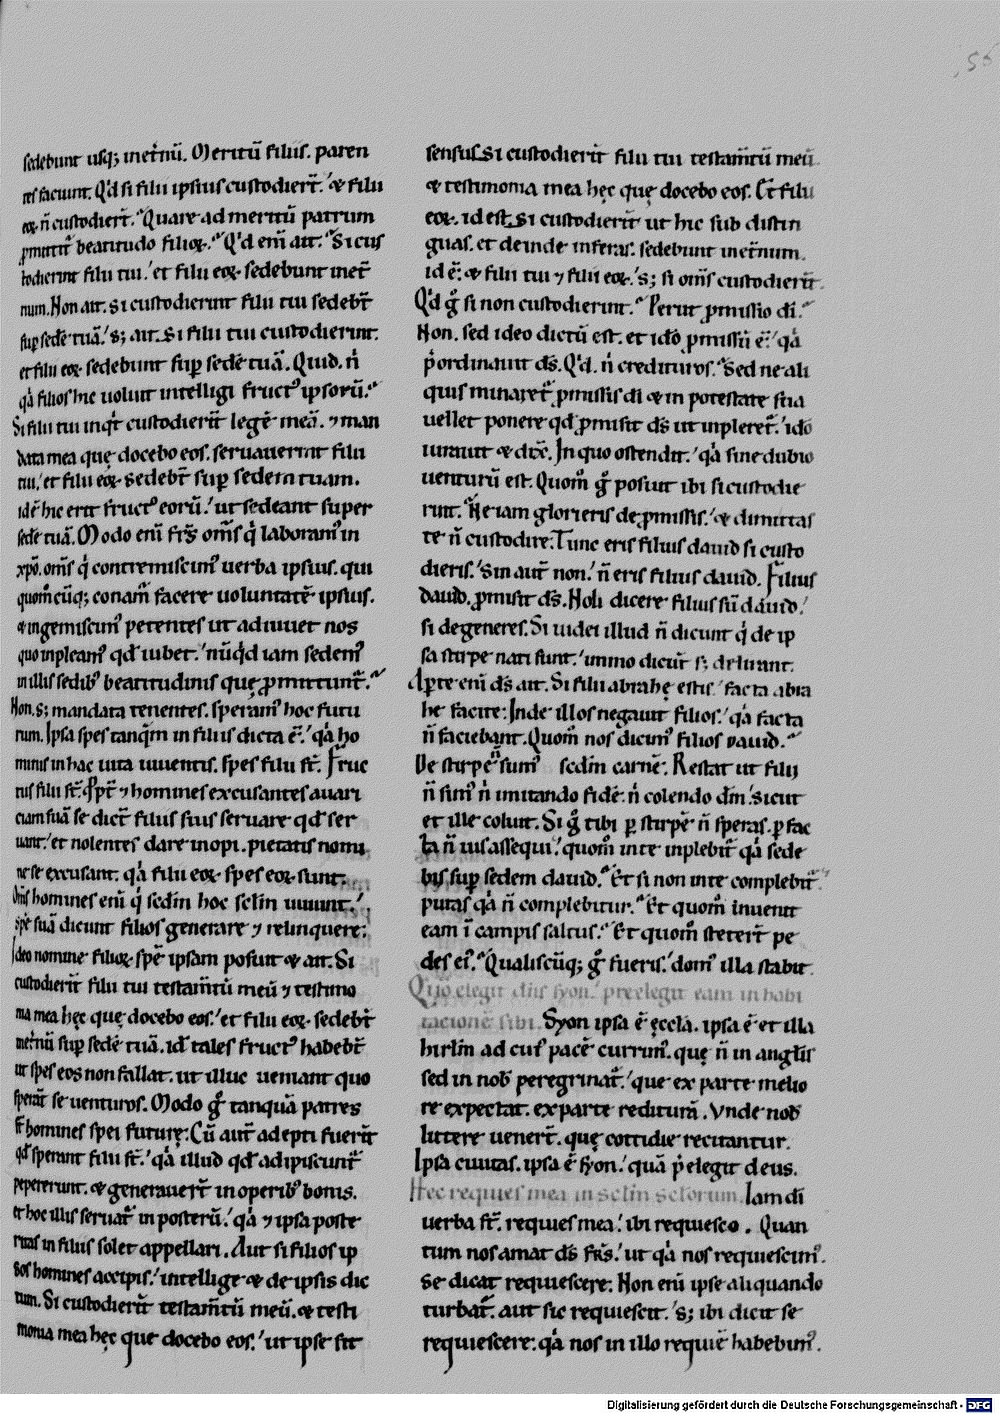 56
sedebunt usq; inet̄nū. Meritū filius. paren
tes faciunt. Q'd si filii ipsius custodier̄t. & filii
eoꝝ. n̄ custodiert̄. Quare ad meritū patrum
ꝓmittit̄ beatitudo filioꝝ. Q'd eni ait. Si cus
todierint filii tui. et filii eoꝝ sedebunt inet̄
num. Non ait. si custodierint filii tui sedeb̄t
sup̄ sedē tuā. s; ait. Si filii tui custodierint.
et filii eoꝝ sedebunt sup̄ sedē tuā. Quid. n̄
q̄a filios hic uoluit intelligi fruct⁹ ipsorū.
Si filii tui inq̄t custodier̄t legē meā. ⁊ man
data mea quę docebo eos. seruauerint filii
tui. et filii eoꝝ sedeb̄t sup̄ sedem tuam.
idē hic erit fruct⁹ eorū. ut sedeant super
sedē tuā. Modo eni fr̄s om̄s q̄ laboram⁹ in
xp̄o. om̄s q̄ contremiscim⁹ uerba ipsius. qui
quom̄cūq; conam̄ facere uoluntatē ipsius.
& ingemiscim⁹ petentes ut adiuuet nos
quo inpleam⁹ qd̄ iubet. nūq̄d iam sedem⁹
in illis sedib⁹ beatitudinis quę ꝓmittunt̄.
Non. s; mandata tenentes. speram⁹ hoc futu
rum. Ipsa spes tanq̄m in filiis dicta ē. q̄a ho
minis in hac uita uiuentis. spes filii st̄. Fruc
tus filii st̄. Ppt̄ ⁊ homines excusantes auari
ciam suā se dict̄ filiis suis seruare qd̄ ser
uant. et nolentes dare inopi. pietatis nomi
ne se excusant. q̄a filii eoꝝ spes eoꝝ sunt.
Om̄s homines eni q̄ scdm hoc sclm uiuunt.
spē suā dicunt filios generare ⁊ relinquere.
Ideo nomine filioꝝ spē ipsam posuit & ait. Si
custodier̄t filii tui testam̄tū meū ⁊ testimo
nia mea hęc quę docebo eos. et filii eoꝝ sedeb̄t
inet̄nū sup̄ sedē tuā. id tales fruct⁹ habeb̄t
ut spes eos non fallat. ut illuc ueniant quo
sperat̄ se uenturos. Modo g̊ tanquā patres
st̄ homines spei futurę. Cū aut̄ adepti fuer̄t
qd̄ sperant filii st̄. q̄a illud qd̄ adipiscunt̄
pepererunt. & generauer̄t in operib⁹ bonis.
et hoc illis seruat̄ in posterū. q̄a ⁊ ipsa poste
ritas in filiis solet appellari. Aut si filios ip
sos homines accipis. intellige & de ipsis dic
tum. Si custodier̄t testam̄tū meū. & testi
monia mea hęc que docebo eos. ut ipse sit
sensus. Si custodier̄t filii tui testam̄tū meū
& testimonia mea hęc quę docebo eos. Et filii
eoꝝ. id est. Si custodier̄t ut hic sub distin
guas. et deinde inferas. sedebunt inet̄num.
id ē. & filii tui ⁊ filii eoꝝ. s; si om̄s custodier̄t.
Q'd g̊ si non custodierint. Perit ꝓmissio di.
Non. sed ideo dictū est. et idō ꝓmissū ē. q̄a
p̄ordinauit ds̄. Q'd. n̄ credituros. Sed ne ali
quis minaret̄ ꝓmissis di & in potestate sua
uellet ponere qd̄ ꝓmisit ds̄ ut inpleret̄. idō
iurauit & dic̄. In quo ostendit. q̄a sine dubio
uenturū est. Quom̄ g̊ posuit ibi si custodie
rint. Ne iam glorieris de ꝓmissis. & dimittas
te n̄ custodire. Tunc eris filius dauid si custo
dieris. Sin aut̄ non. n̄ eris filius dauid. Filius
dauid. ꝓmisit ds̄. Noli dicere filius sū dauid.
si degeneres. Si iudei illud n̄ dicunt q̄ de ip
sa stirpe nati sunt. immo dicūt s; delirant.
Apte eni ds̄ ait. Si filii abrahę estis. facta abra
he facite. Inde illos negauit filios. q̄a facta
n̄ faciebant. Quom̄ nos dicim⁹ filios dauid.
De stirpe n̄ sum⁹ scdm carnē. Restat ut filii
n̄ sim⁹ n̄ imitando fidē. n̄ colendo dm̄. sicut
et ille coluit. Si g̊ tibi p̄ stirpē n̄ speras. p̄ fac
ta n̄ uis assequi. quom̄ in te inplebit̄ q̄a sede
bis sup̄ sedem dauid. Et si non in te complebit̄.
putas q̄a n̄ complebitur. Et quom̄ inuenit
eam ī campis saltus. Et quom̄ steter̄t pe
des ei⁹. Qualiscūq; g̊ fueris. dom⁹ illa stabit.
Q'uo elegit dn̄s syon. preelegit eam in habi
tacionē sibi. Syon ipsa ē ęcclā. ipsa ē et illa
hirlm ad cui⁹ pacē currim⁹. quę n̄ in anglis
sed in nob̄ peregrinat̄. que ex parte melio
re expectat. ex parte rediturā. Vnde nob̄
littere uener̄t. quę cottidie recitantur.
Ipsa ciuitas. ipsa ē syon. quā p̄elegit deus.
Hec requies mea in sclm sclorum. Iam di
uerba st̄. requies mea. ibi requiesco. Quan
tum nos amat ds̄ fr̄s. ut q̄a nos requiescim⁹.
se dicat requiescere. Non eni ipse aliquando
turbat̄. aut sic requiescit. s; ibi dicit se
requiescere. q̄a nos in illo requiē habebim⁹.
Digitalisierung gefördert durch die Deutsche Forschungsgemeinschaft - DFG